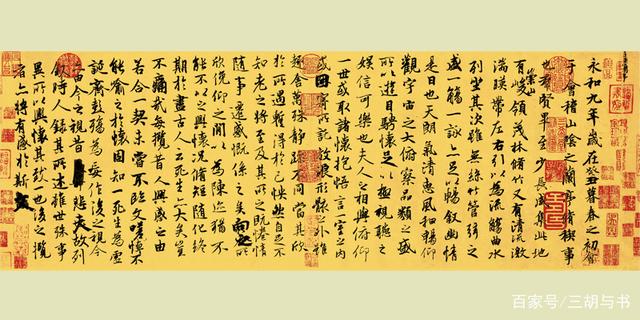 永和九年歲在癸丑暮春之初會
于會稽山陰之蘭亭脩稧事
也羣賢畢至少長咸集此地
有崇山峻領茂林脩竹又有清流激
湍暎帶左右引以為流觴曲水
列坐其次雖無絲竹管弦之
盛一觴一詠亦足以暢敘幽情
是日也天朗氣清惠風和暢仰
觀宇宙之大俯察品類之盛
所以遊目騁懷足以極視聽之
娛信可樂也夫人之相與俯仰
一世或取諸懷抱悟言一室之內
或因寄所託放浪形骸之外雖
趣舍萬殊靜躁不同當其欣
於所遇蹔得於己怏然自足不
知老之將至及其所之既惓情
隨事遷感慨係之矣向之所
欣俛仰之閒以為陳迹猶不
能不以之興懷況脩短隨化終
期於盡古人云死生亦大矣豈
不痛哉每攬昔人興感之由
若合一契未嘗不臨文嗟悼不
能喻之於懷固知一死生為虛
誕齊彭殤為妄作後之視今
亦由今之視昔悲夫故列
敘時人錄其所述雖世殊事
異所以興懷其致一也後之攬
者亦將有感於斯文
百家号/三胡与书